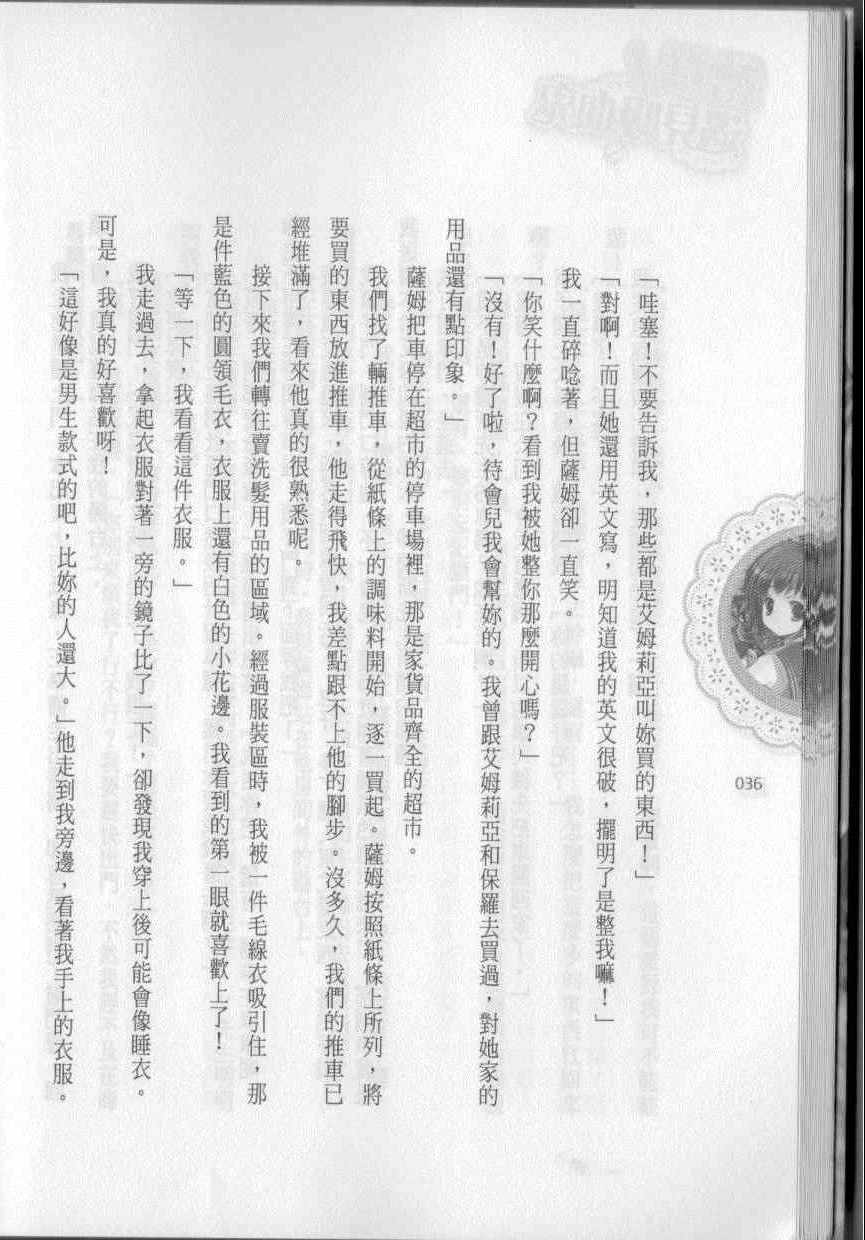 「哇塞！不要告訴我，那些都是艾姆莉亞叫妳買的東西！」
「對啊！而且她還用英文寫，明知道我的英文很破，擺明了是整我嘛！」
我一直碎唸著，但薩姆卻一直笑。
「你笑什麼啊？看到我被她整你那麼開心嗎？」
「沒有！好了啦，待會兒我會幫妳的。我曾跟艾姆莉亞和保羅去買過，對她家的
用品還有點印象。」
薩姆把車停在超市的停車場裡，那是家貨品齊全的超市。
我們找了輛推車，從紙條上的調味料開始，逐一買起。薩姆按照紙條上所列，將
要買的東西放進推車，他走得飛快，我差點跟不上他的腳步。沒多久，我們的推車已
經堆滿了，看來他真的很熟悉呢。
接下來我們轉往賣洗髮用品的區域。經過服裝區時，我被一件毛線衣吸引住，那
是件藍色的圓領毛衣，衣服上還有白色的小花邊。我看到的第一眼就喜歡上了！
「等一下，我看看這件衣服。」
我走過去，拿起衣服對著一旁的鏡子比了一下，卻發現我穿上後可能會像睡衣。
可是，我真的好喜歡呀！
「這好像是男生款式的吧，比妳的人還大。」他走到我旁邊，看著我手上的衣服。
036